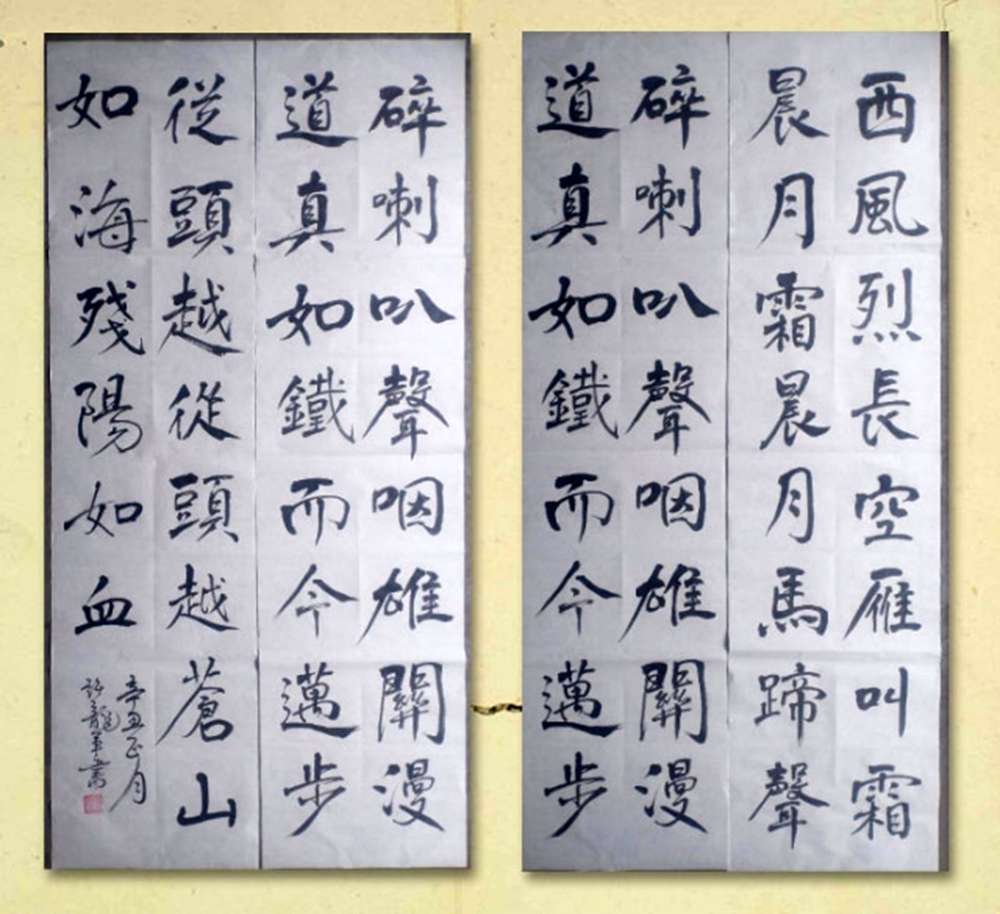 西風烈長空雁叫霜
晨月霜晨月馬蹄聲
碎喇叭聲咽雄關漫
道真如鐵而今邁步
碎喇叭聲咽雄關漫
道真如鐵而今邁步
從頭越從頭越蒼山
如海殘陽如血
辛丑正月
許龍軍書